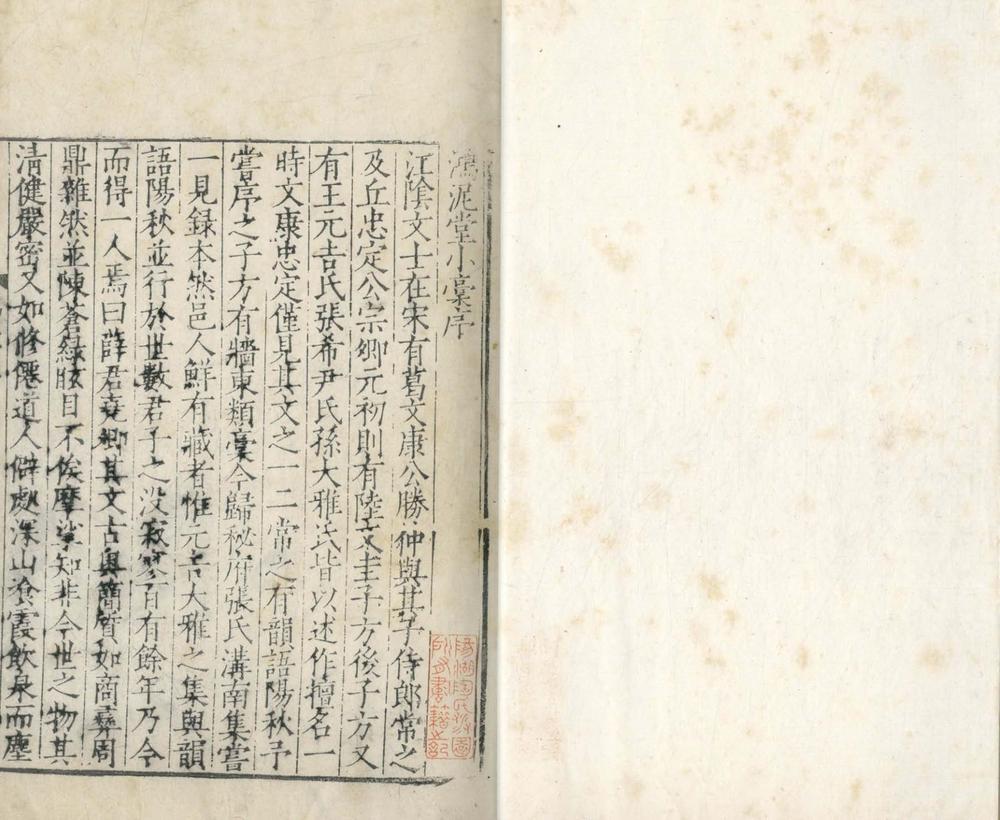 鴻泥堂小稾序
江陰文士在宋有葛文康公勝仲與其子侍郎常之
及丘忠定公宗卿元初則有陸文圭子方後子方又
有王元吉氏張希尹氏孫大雅氏皆以述作擅名一
時文康忠定僅見其文之一二常之有韻語陽秋予
嘗序之子方有牆東類稾今歸秘府張氏溝南集嘗
一見録本然邑人鮮有藏者惟元吉大雅之集與韻
語陽秋並行於世數君子之没寂寥百有餘年乃今
而得一人焉曰薛君堯卿其文古奥簡質如商彝周
鼎雜然並陳蒼緑眩目不俟摩挲知非今世之物其
清健嚴密又如修僊道人僻處深山飡霞飲泉而塵
陽湖陶氏涉園
所有書籍之記